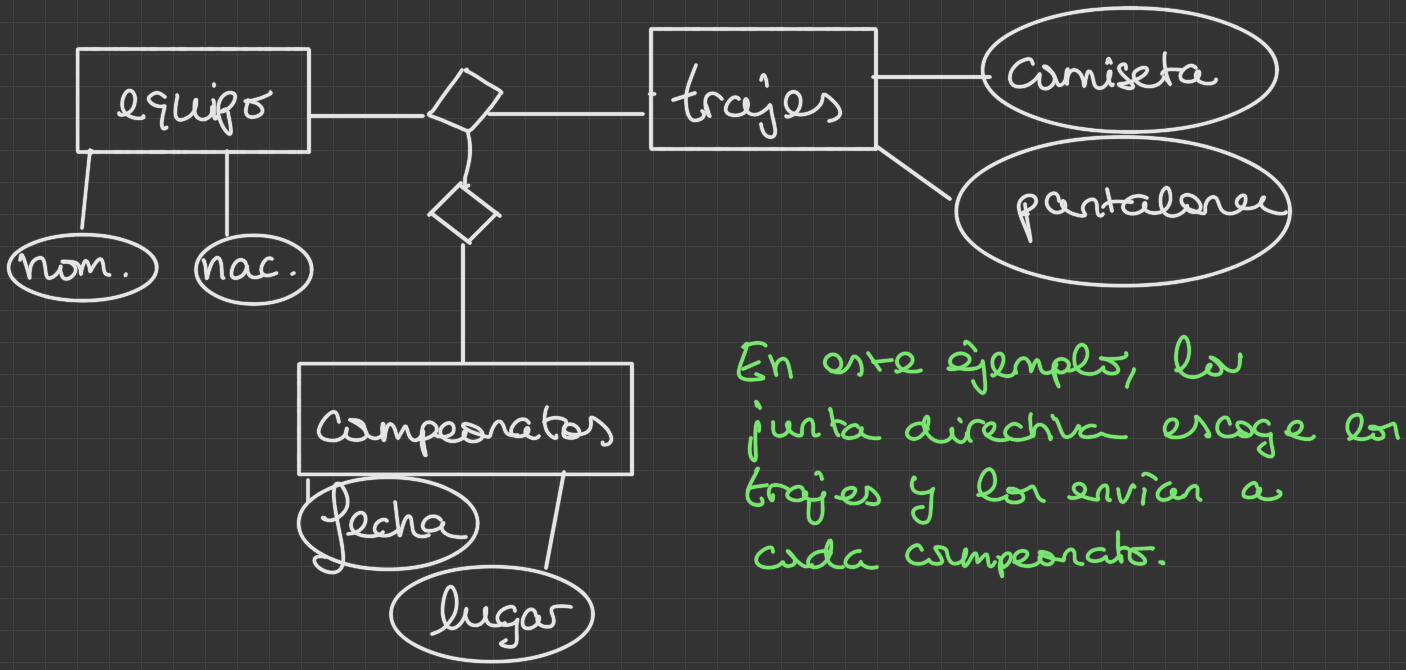 equipo
trajes
camiseta
pantalones
nom.
nac.
campeonatos
fecha
lugar
En este ejemplo, la
junta directiva escoge los
trajes y los envían a
cada campeonato.